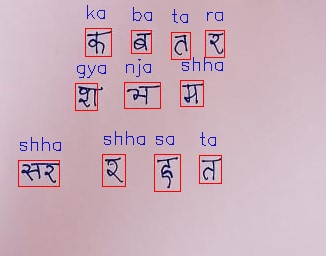 ka ba ta ra
क ब त र
gya nja shha
श भ म
shha shha sa ta
सर र द त